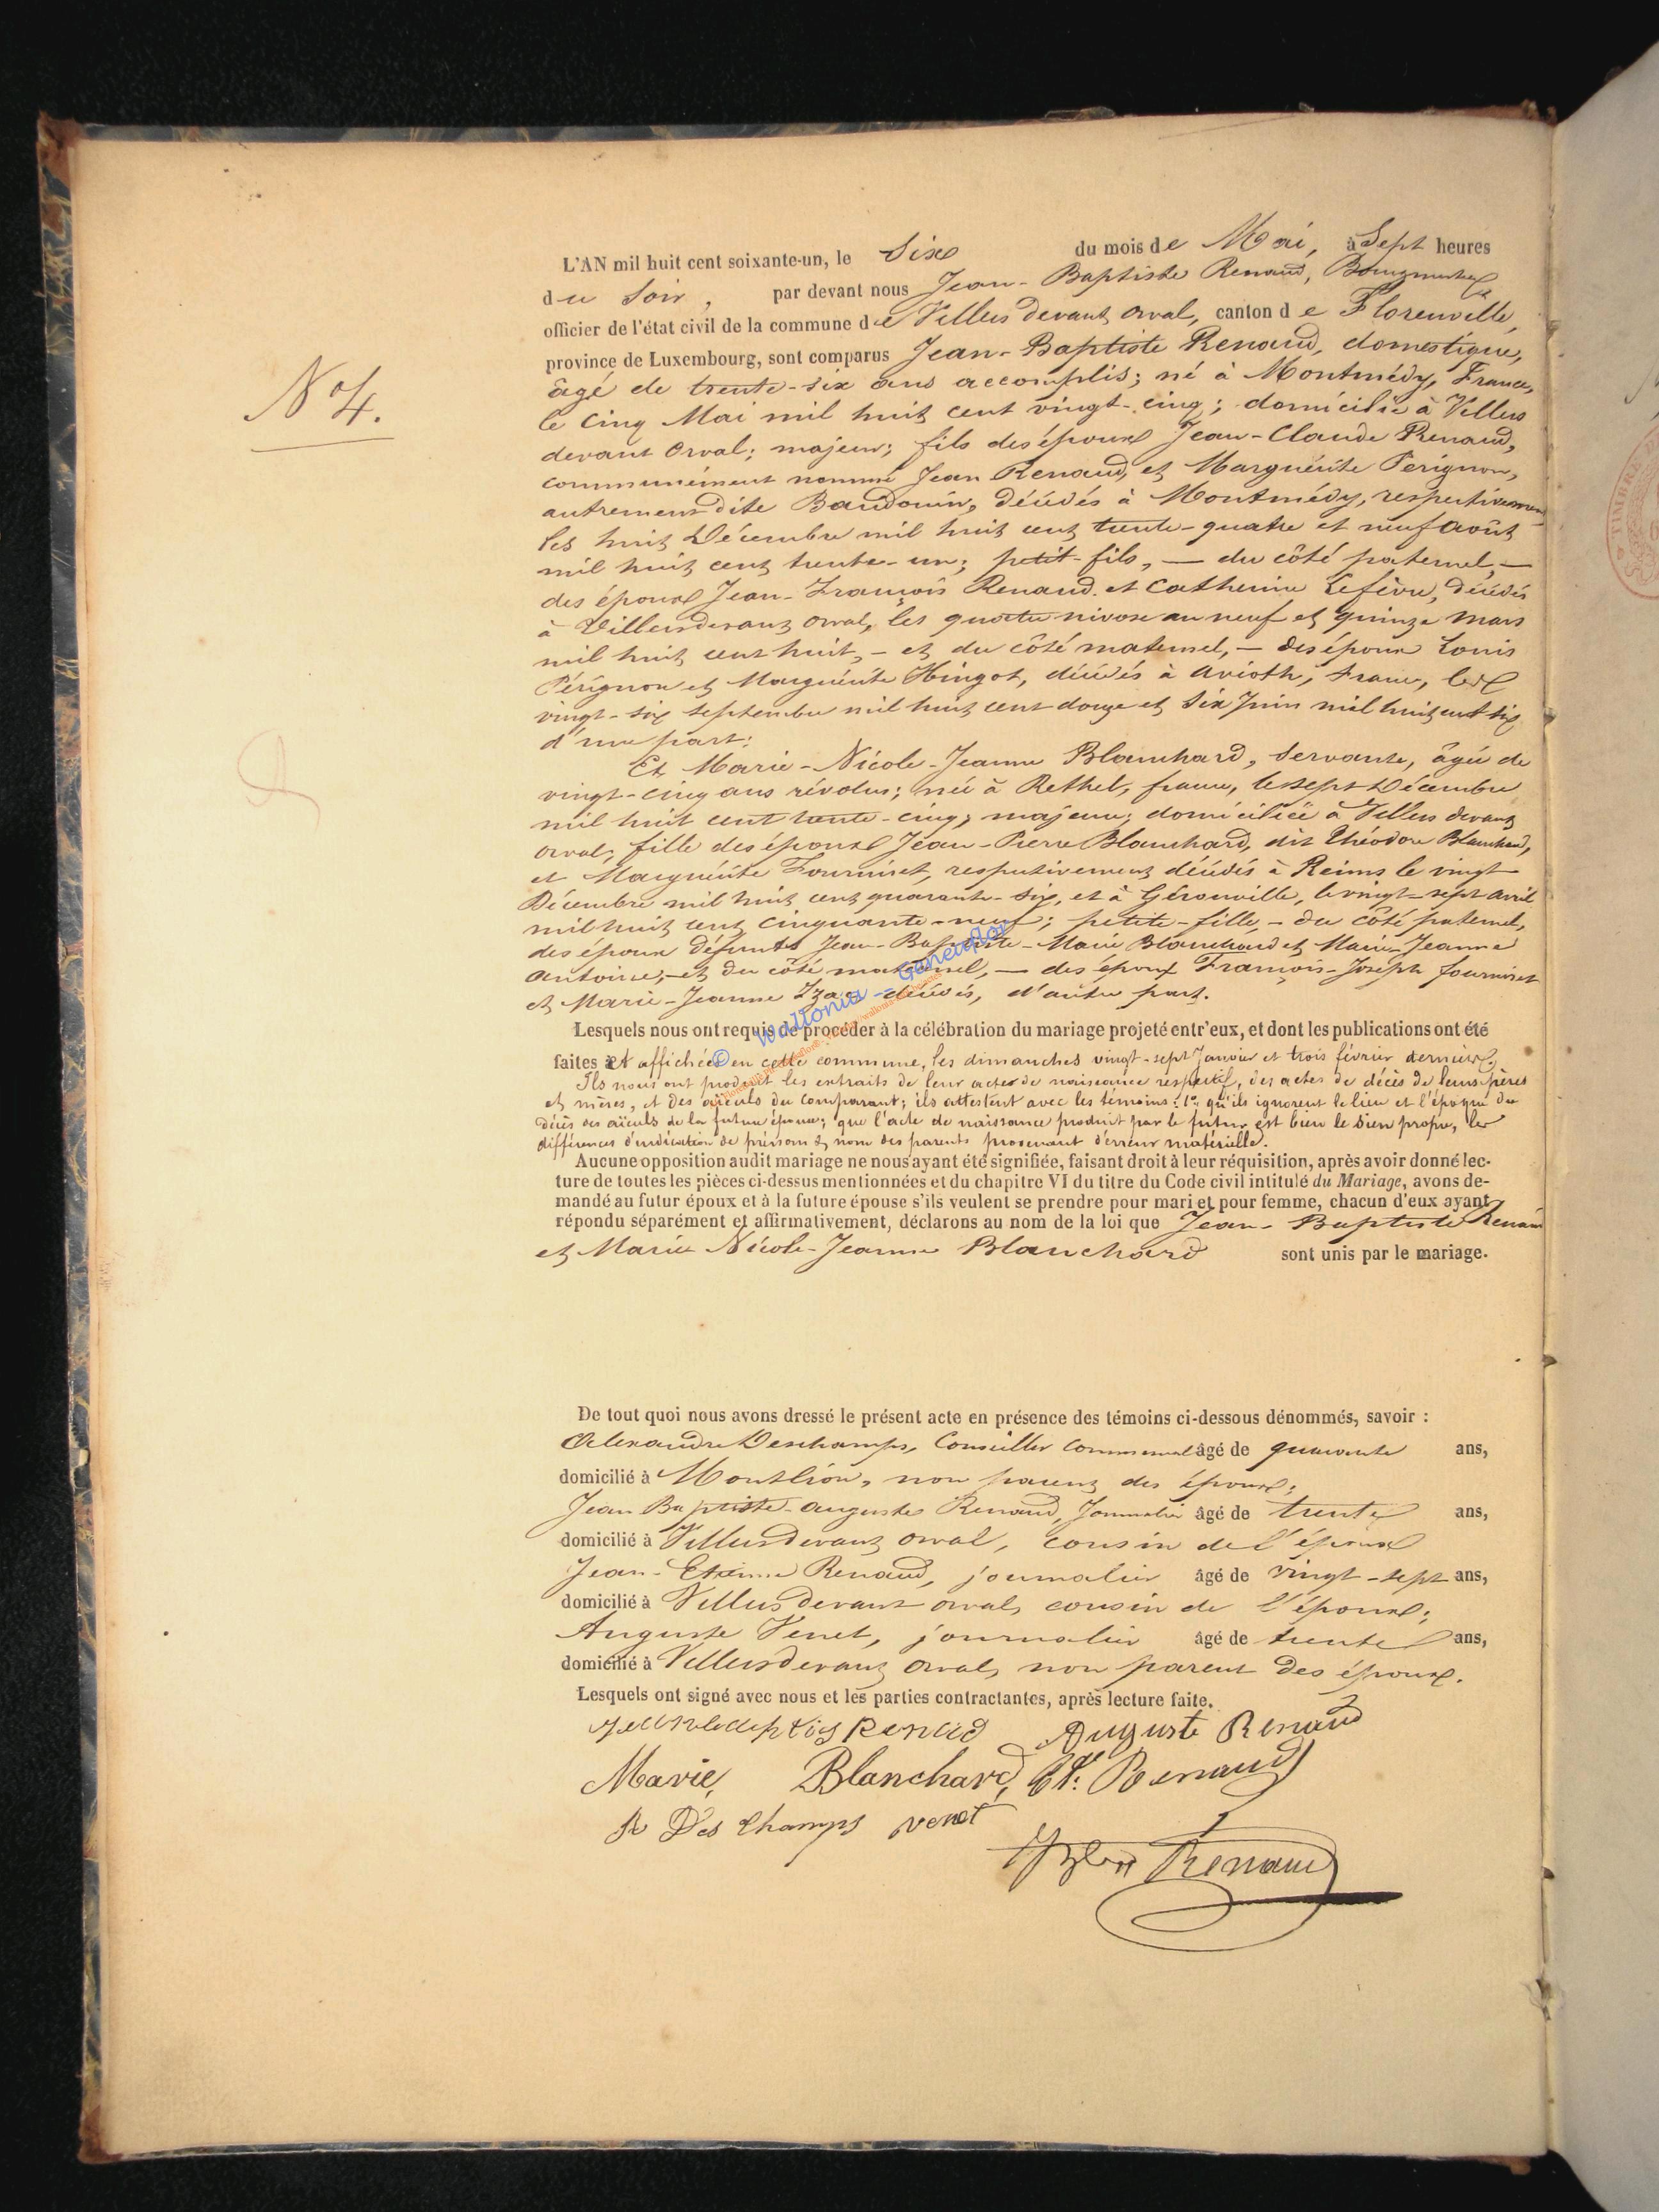 N° 4.
L'AN mil huit cent soixante-un, le Six du mois de Mai, à Sept heures
du Soir, par devant nous Jean-Baptiste Renaud, Bourgmestre
officier de l'état civil de la commune de Villers devant Orval, canton de Florenville,
province de Luxembourg, sont comparus Jean-Baptiste Renaud, domestique,
âgé de trente-six ans accomplis; né à Montmédy, France,
le cinq Mai mil huit cent vingt-cinq; domicilié à Villers
devant Orval; majeur; fils des époux Jean-Claude Renaud,
communément nommé Jean Renaud, et Marguérite Perignon,
autrement dite Baudouin, décédés à Montmédy, respectivement
les huit Décembre mil huit cent trente-quatre et neuf Août
mil huit cent trente-un; petit-fils, — du côté paternel, —
des époux Jean-François Renaud et Catherine Lefèvre, décédés
à Villers devant Orval, les quatre nivose an neuf et quinze Mars
mil huit cent huit, - et du côté maternel, — des époux Louis
Pérignon et Marguérite Hingot, décédés à Avioth, France, les
vingt-six septembre mil huit cent douze et six Juin mil huit cent six
d'une part;
Et Marie-Nicole-Jeanne Blanchard, Servante, âgée de
vingt-cinq ans révolus; née à Rethel, france, le sept Décembre
mil huit cent trente-cinq; majeure; domiciliée à Villers devant
Orval, fille des époux Jean-Pierre Blanchard, dit Théodore Blanchard,
et Marguérite Fourniret, respectivement décédés à Reims le vingt
Décembre mil huit cent quarante-six, et à Gérouville, le vingt-sept avril
mil huit cent cinquante-neuf; petite-fille, - du côté paternel,
des époux défunts Jean-Baptiste-Marie Blanchard et Marie-Jeanne
Antoine, - et du côté maternel, — des époux François-Joseph fourniret
et Marie-Jeanne décédés, d'autre part.
© Wallonia - Geneaflor
Lesquels nous ont requis de procéder à la célébration du mariage projeté entr'eux, et dont les publications ont été
faites et affichées en cette commune, les dimanches vingt-sept Janvier et trois février derniers.
Ils nous ont produit les extraits de leur acte de naissance respectif, des actes de décès de leurs pères
et mères, et des aïeuls du comparant; ils attestent avec les témoins: 1° qu'ils ignorent le lieu et l'époque du
décès des aïeuls de la future épouse; que l'acte de naissance produit par le futur est bien le sien propre, les
différences d'indication de prénoms & nom des parents provenant d'erreur matérielle.
Aucune opposition audit mariage ne nous ayant été signifiée, faisant droit à leur réquisition, après avoir donné lec-
ture de toutes les pièces ci-dessus mentionnées et du chapitre VI du titre du Code civil intitulé du Mariage, avons de-
mandé au futur époux et à la future épouse s'ils veulent se prendre pour mari et pour femme, chacun d'eux ayant
répondu séparément et affirmativement, déclarons au nom de la loi que Jean-Baptiste Renaud
et Marie Nicole-Jeanne Blanchard sont unis par le mariage.
De tout quoi nous avons dressé le présent acte en présence des témoins ci-dessous dénommés, savoir :
Alexandre Deschamps, Conseiller Communal âgé de quarante ans,
domicilié à Montlion, non parent des époux;
Jean Baptiste-Auguste Renaud, Journalier âgé de trente ans,
domicilié à Villers devant Orval, cousin de l'époux
Jean-Etienne Renaud, journalier âgé de vingt-sept ans,
domicilié à Villers devant Orval, cousin de l'époux;
Auguste Venet, journalier âgé de trente ans,
domicilié à Villers devant Orval, non parent des époux.
Lesquels ont signé avec nous et les parties contractantes, après lecture faite.
Auguste Renaud
Marie, Blanchard, Et. Renaud
A Des Champs Venet
Renaud